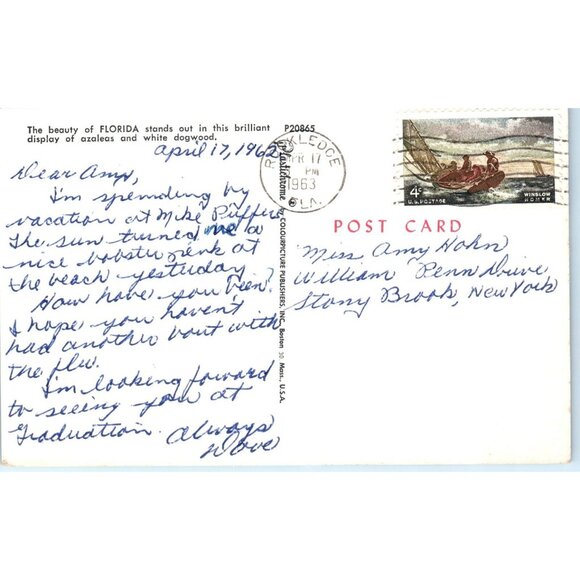 The beauty of FLORIDA stands out in this brilliant
display of azaleas and white dogwood.
P20865
April 17, 1962
Dear Amy,
I'm spending my
vacation at Mike
The sun turned me a
nice lobster pink at
the beach yesturday
How have you been?
I hope you haven't
had another bout with
the flu.
I'm looking forward
to seeing you at
Graduation.
Always
Dave
Plastichrome by COLOURPICTURE PUBLISHERS, INC. Boston 30 Mass., U.S.A.
ROCKLEDGE
APR 17
PM
1963
FLA.
4¢
U.S. POSTAGE
WINSLOW
HOMER
POST CARD
Miss Amy Hohn
William Penn Drive,
Stony Brook, New York